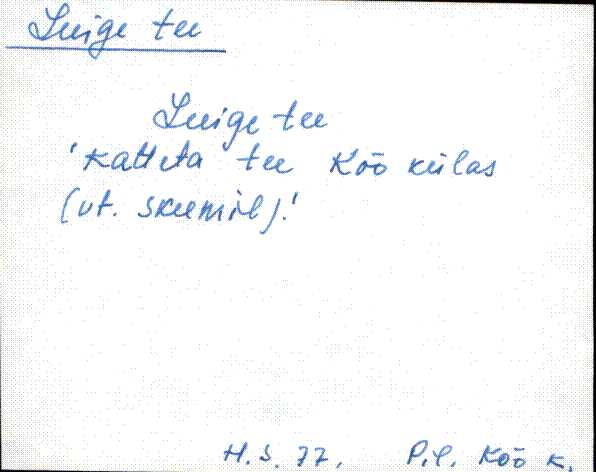 Luige tee
Luige tee
'Katteta tee Kõo külas
(vt. skeemil).'
H. S. 77. Pil. Kõo k.